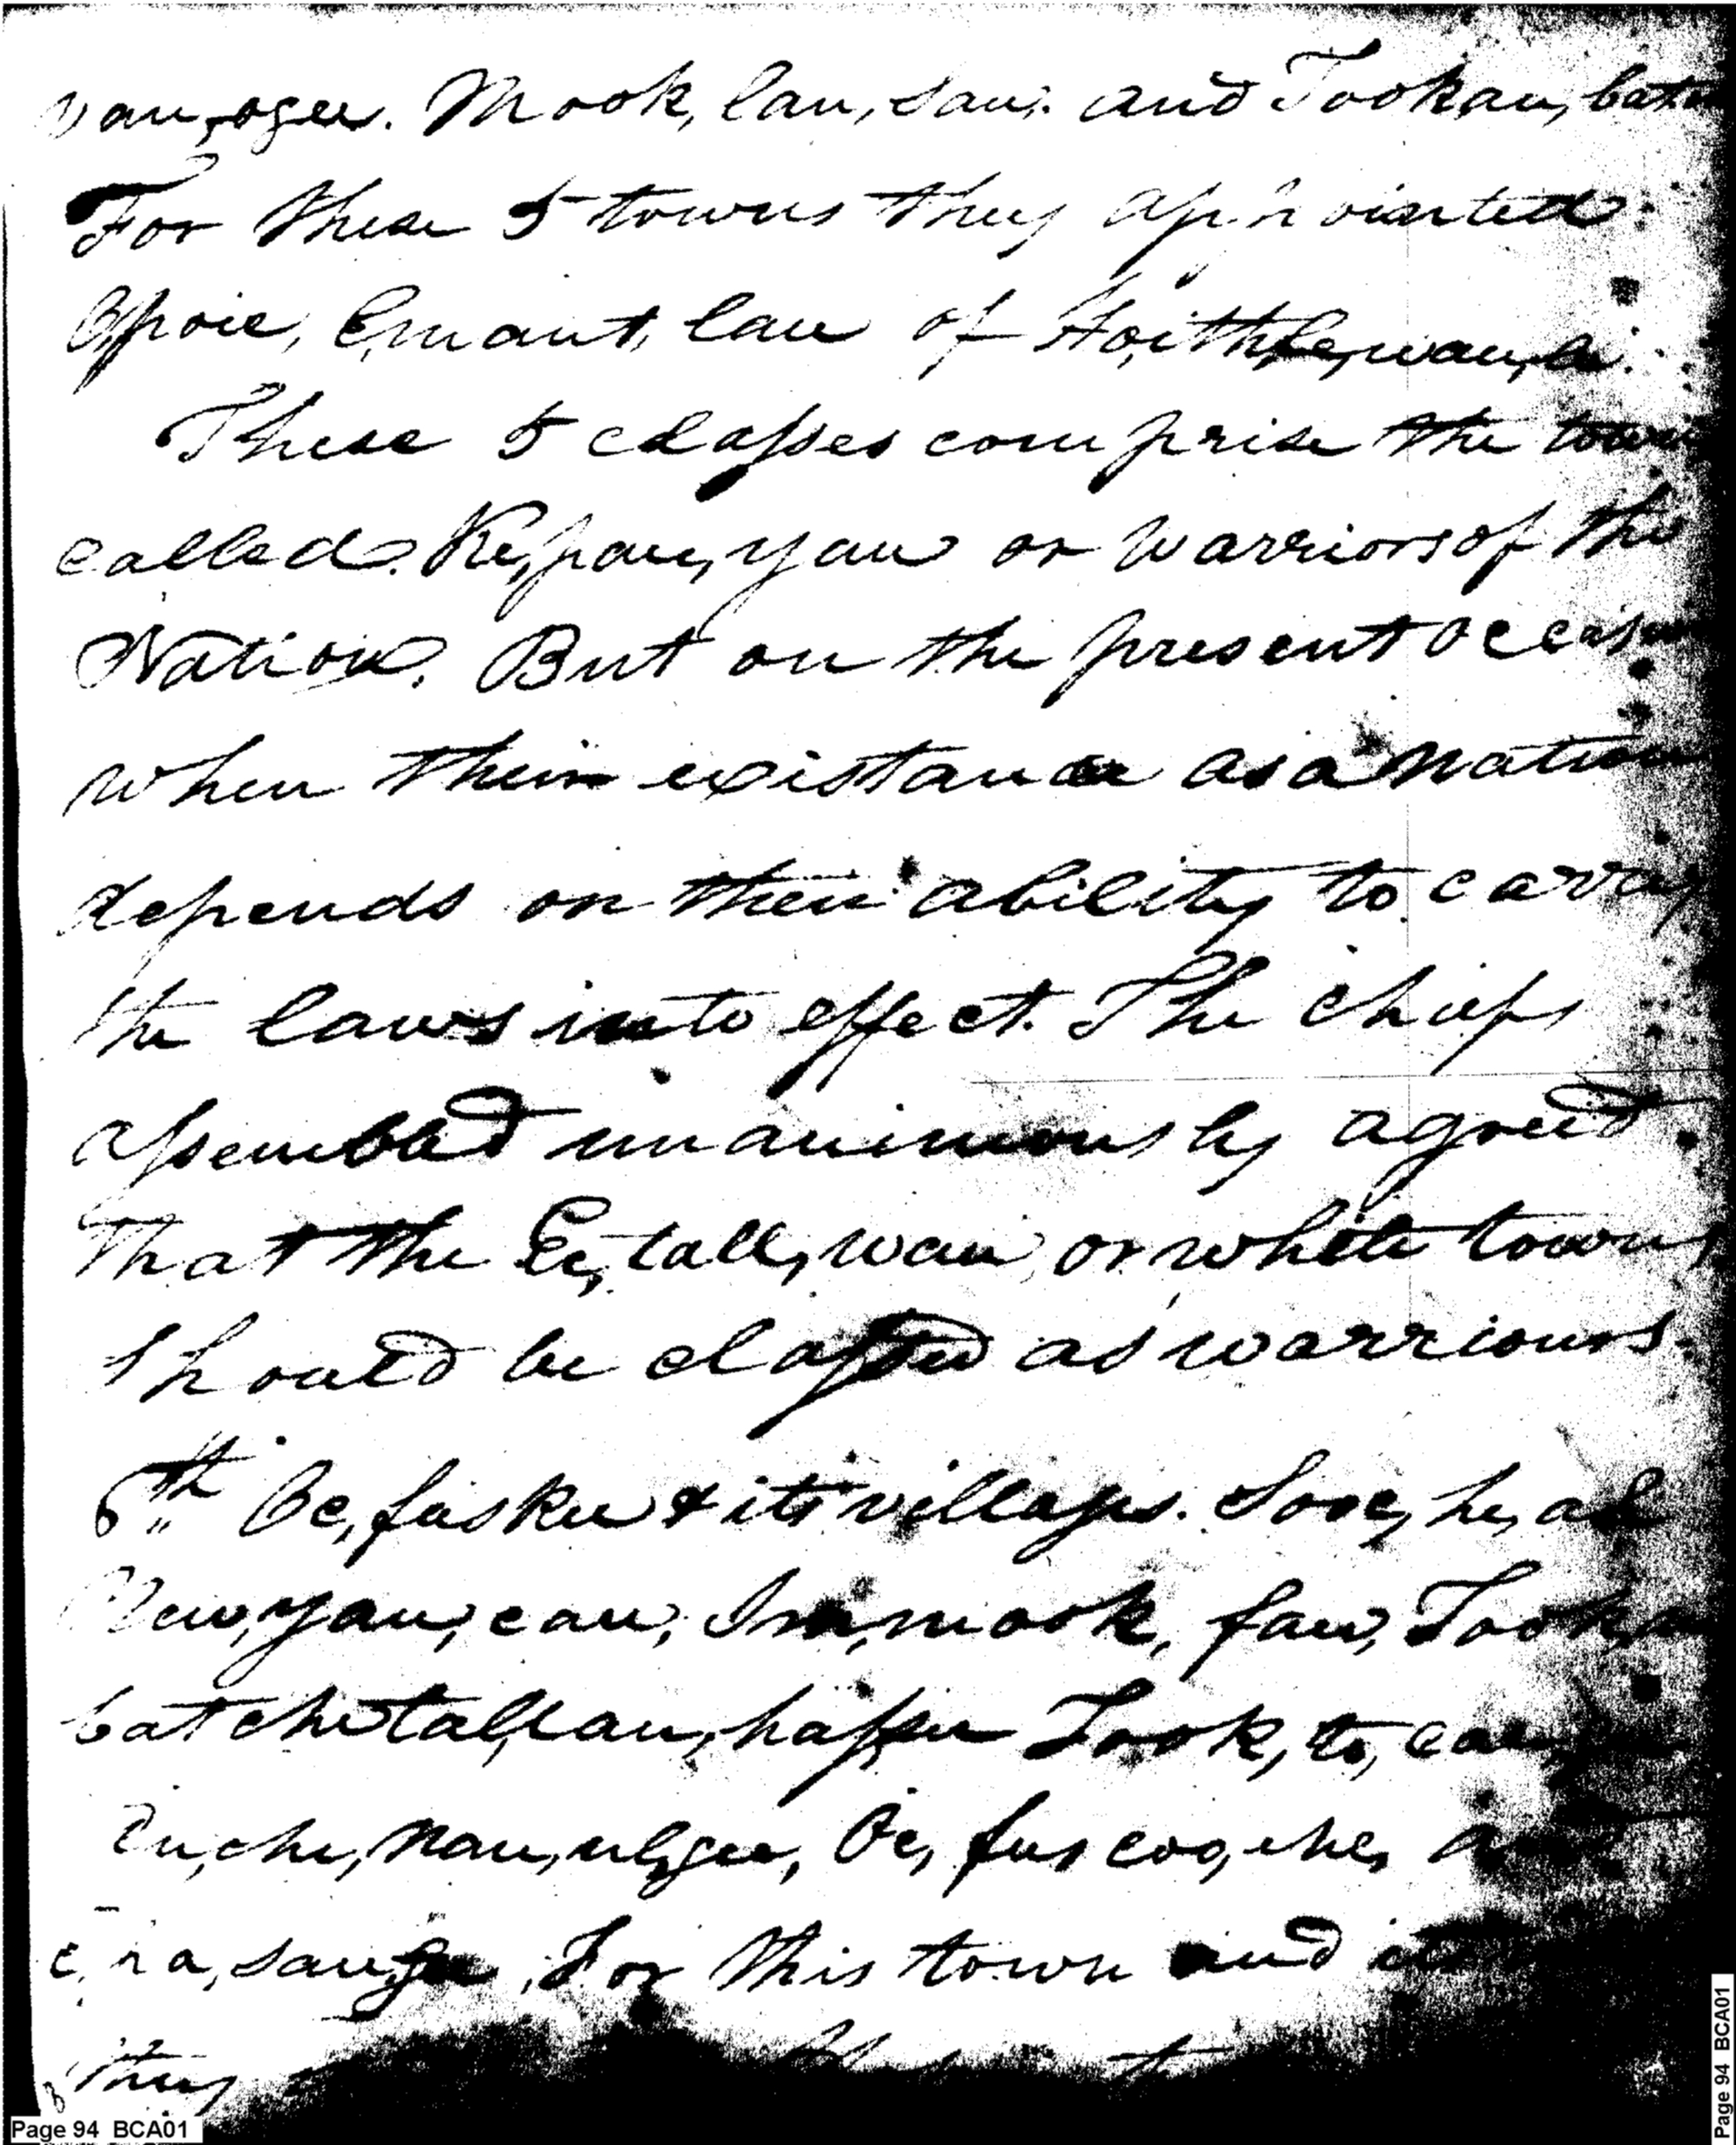 van,ogee. Mook, lau, sau, and Tookau, bat
For these 5 towns they appointed
Opoie, Emaut, lau of Hoithlewau,le.
These 5 classes comprise the town
called. Ke,pau,yau or warriors of the
Nation. But on the present occasi
when their existance as a nation
depends on their ability to carry
the laws into effect. The chiefs
assembled unanimously agreed.
That the Ee,tall,wau, or white towns
should be classed as warriours.
6th Oc,fuskee & its villages. Sooc,he,ah
New,yau,cau, Im,mook, fau, Took
batchetallau,hassee Took,to,cau,
Luche,nau,ulgee, Oc,fuscoo,che,
E,pa,saugee. For this town and its
they
Page 94 BCA01
Page 94 BCA01